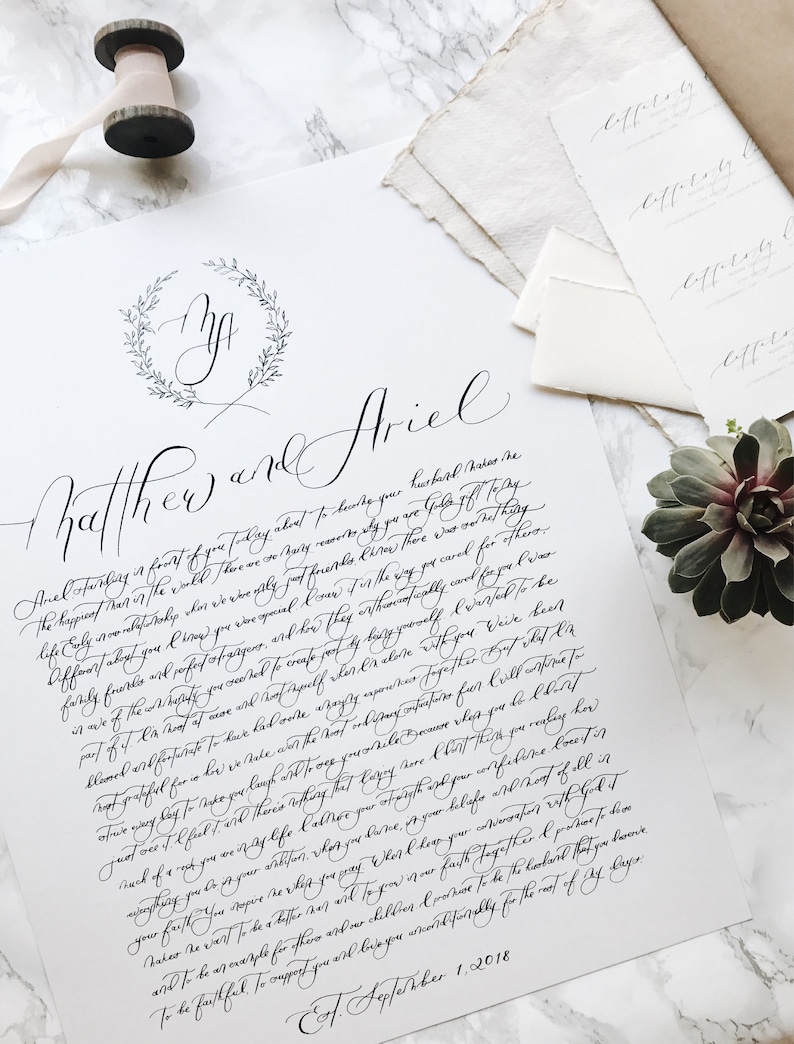 MA
Matthew and Ariel
Ariel standing in front of you today about to become your husband makes me
the happiest man in the world. There are so many reasons why you are God's gift to my
life. Early in our relationship, when we were only just friends, I knew there was something
different about you. I knew you were special. I saw it in the way you cared for others,
family, friends and perfect strangers, and how they enthusiastically cared for you. I was
in awe of the community you seemed to create just by being yourself. I wanted to be
part of it. I'm most at ease and most myself when I'm alone with you. We've been
blessed and fortunate to have had some amazing experiences together. But what I'm
most grateful for is how we make even the most ordinary situations fun. I will continue to
strive every day to make you laugh and to see you smile. Because when you do I don't
just see it, I feel it, and there's nothing that I enjoy more. I don't think you realize how
much of a rock you are in my life. I admire your strength and your confidence. I see it in
everything you do, in your ambition, when you dance, in your beliefs and most of all in
your faith. You inspire me when you pray. When I hear your conversation with God it
makes me want to be a better man and to grow in our faith together. I promise to do so
and to be an example for others and our children. I promise to be the husband that you deserve,
to be faithful, to support you and love you unconditionally for the rest of my days.
Est. September 1, 2018
letters by
letters by
letters by
letters by